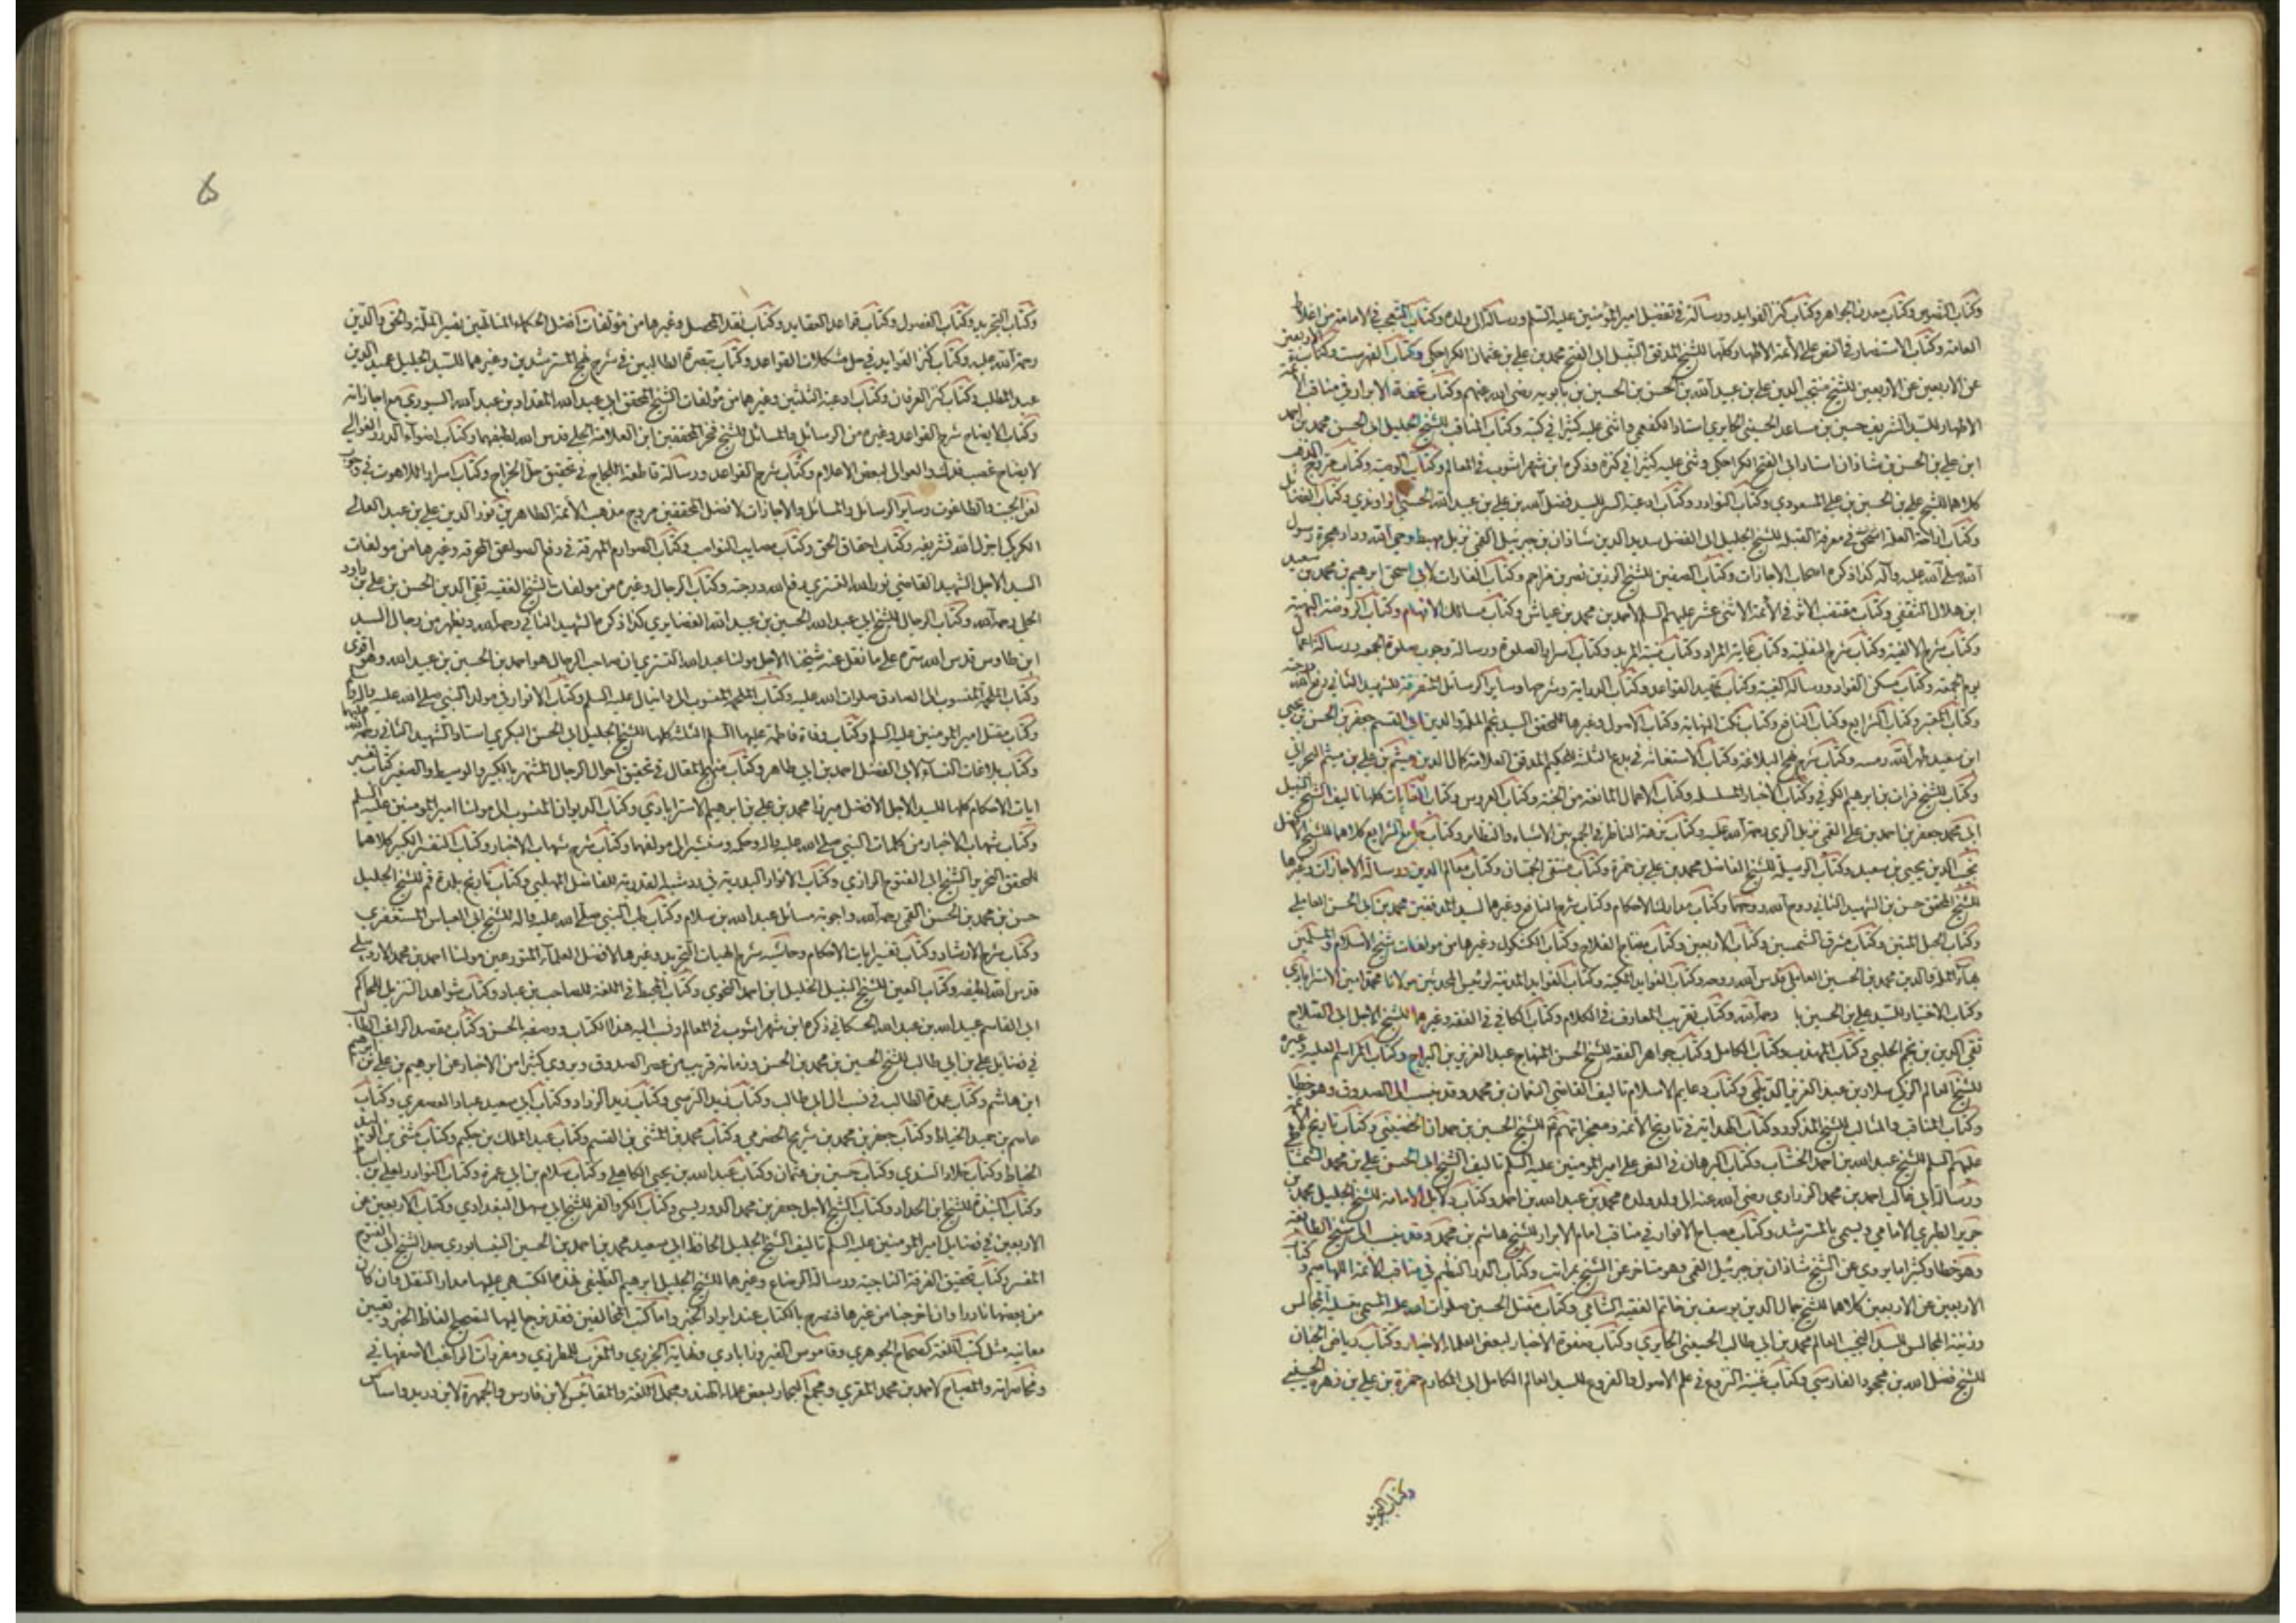 وكتاب التفسير وكتاب معدن الجواهر وكتاب كنز الفوايد ورسالة في تفضيل امير المؤمنين عليه السلم ورسالة الى ولده وكتاب التعجب في الامامة من اغلاط
العامة وكتاب الاستنصار في النص على الأئمة الاطهار وكلها للشيخ المدقق النبيل ابى الفتح محمد بن علي بن عثمان الكراجكي وكتاب الفهرست وكتاب الاربعين
عن الاربعين عن الاربعين للشيخ منتجب الدين علي بن عبيد الله بن الحسن بن الحسين بن بابويه رضي الله عنهم وكتاب تحفة الابرار في مناقب الأئمة
الاطهار للسيد الشريف حسين بن مساعد الحسيني الحايري استاد الكفعمي واثنى عليه كثيرا في كتبه وكتاب المناقب للشيخ الجليل ابى الحسن محمد بن احمد
ابن علي بن الحسن بن شاذان استاد ابى الفتح الكراجكي ويثني عليه كثيرا في كنزه وذكره ابن شهراشوب في المعالم وكتاب الوصية وكتاب مروج الذهب
كلاهما للشيخ علي بن الحسين بن علي المسعودي وكتاب النوادر وكتاب ادعية السر للسيد فضل الله بن علي بن عبيد الله الحسيني الراوندي وكتاب الفضايل
وكتاب ازاحة العلة في معرفة القبلة للشيخ الجليل ابى الفضل سديد الدين شاذان بن جبرئيل القمي نزيل مهبط وحي الله ودار هجرة رسول
الله صلى الله عليه وآله كذا ذكره اصحاب الاجازات وكتاب الصفين للشيخ الرزين نصر بن مزاحم وكتاب الغارات لابى اسحق ابرهيم بن محمد بن سعيد
ابن هلال الثقفي وكتاب مقتضب الاثر في الأئمة الاثنى عشر عليهم السلم لاحمد بن محمد بن عياش وكتاب مسالك الافهام وكتاب الروضة البهية
وكتاب شرح الالفية وكتاب شرح النفلية وكتاب غاية المراد وكتاب منية المريد وكتاب اسرار الصلوة ورسالة وجوب صلوة الجمعة ورسالة اعمال
يوم الجمعة وكتاب مسكن الفواد ورسالة الغيبة وكتاب تمهيد القواعد وكتاب الدراية وشرحها وساير الرسائل المتفرقة للشهيد الثاني رفع الله درجته
وكتاب المعتبر وكتاب الشرايع وكتاب النافع وكتاب نكت النهاية وكتاب الاصول وغيرها للمحقق السيد نجم الملة والدين ابى القسم جعفر بن الحسن بن يحيى
ابن سعيد طهر الله رمسه وكتاب شرح نهج البلاغة وكتاب الاستغاثة في بدع الثلثة للحكيم المدقق العلامة كمال الدين ميثم بن علي بن ميثم البحراني
وكتاب للشيخ فرات بن ابرهيم الكوفي وكتاب الاخبار المسلسلة وكتاب الاعمال المانعة من الجنة وكتاب العروس وكتاب الغايات كلها تاليف الشيخ النبيل
ابى محمد جعفر بن احمد بن علي القمي نزيل الري رحمة الله عليه وكتاب نزهة الناظر في الجمع بين الاشباه والنظاير وكتاب جامع الشرايع كلاهما للشيخ الافضل
نجيب الدين يحيى بن سعيد وكتاب الوسيلة للشيخ الفاضل محمد بن علي بن حمزة وكتاب منتقى الجمان وكتاب معالم الدين ورسالة الاجازات وغيرها
للشيخ المحقق حسن بن الشهيد الثاني روح الله روحهما وكتاب مدارك الاحكام وكتاب شرح النافع وغيرهما لسيد المدققين محمد بن ابى الحسن العاملي
وكتاب الحبل المتين وكتاب مشرق الشمسين وكتاب الاربعين وكتاب مفتاح الفلاح وكتاب الكشكول وغيرها من مولفات شيخ الاسلام والمسلمين
بهاء الملة والدين محمد بن الحسين العاملي قدس الله روحه وكتاب الفوايد المكية وكتاب الفوايد المدنية لرئيس المحدثين مولانا محمد امين الاسترابادي
وكتاب الاختيار للسيد علي بن الحسين رحمه الله وكتاب تقريب المعارف في الكلام وكتاب الكافي في الفقه وغيرهما للشيخ الاجل ابى الصلاح
تقي الدين بن نجم الحلبي وكتاب المهذب وكتاب الكامل وكتاب جواهر الفقه للشيخ الحسن المنهاج عبد العزيز بن البراج وكتاب المراسم العلية وغيره
للشيخ العالم الزكي سلار بن عبد العزيز الديلمي وكتاب دعايم الاسلام تاليف القاضي النعمان بن محمد وقد ينسب الى الصدوق وهو خطا
وكتاب المناقب والمثالب للشيخ المذكور وكتاب الهداية في تاريخ الأئمة ومعجزاتهم للشيخ الحسين بن حمدان الحضيني وكتاب تاريخ الأئمة
عليهم السلم للشيخ عبد الله بن احمد الخشاب وكتاب البرهان في النص على امير المؤمنين عليه السلم تاليف الشيخ ابى الحسن علي بن محمد الشمشاطي
ورسالة ابى غالب احمد بن محمد الزراري رضي الله عنه الى ولد ولده محمد بن عبد الله بن احمد وكتاب دلايل الامامة للشيخ الجليل محمد بن
جرير الطبري الامامي ويسمى بالمسترشد وكتاب مصباح الانوار في مناقب امام الابرار للشيخ هاشم بن محمد وقد ينسب الى شيخ الطايفة
وهو خطا وكثيرا ما يروي عن الشيخ شاذان بن جبرئيل القمي وهو متاخر عن الشيخ بمراتب وكتاب الدر النظيم في مناقب الأئمة اللهاميم وكتاب
الاربعين عن الاربعين كلاهما للشيخ جمال الدين يوسف بن حاتم الفقيه الشامي وكتاب مقتل الحسين صلوات الله عليه المسمى بتسلية المجالس
وزينة المجالس للسيد النجيب العالم محمد بن ابى طالب الحسيني الحايري وكتاب صفوة الاخبار لبعض العلماء الاخيار وكتاب رياض الجنان
للشيخ فضل الله بن محمود الفارسي وكتاب غنية النزوع في علم الاصول والفروع للسيد العالم الكامل ابى المكارم حمزة بن علي بن زهرة الحسيني
وكتاب التجريد
وكتاب التجريد وكتاب الفصول وكتاب قواعد العقايد وكتاب نقد المحصل وغيرها من مؤلفات افضل الحكماء المتالهين نصير الملة والحق والدين
رحمة الله عليه وكتاب كنز الفوايد في حل مشكلات القواعد وكتاب تبصرة الطالبين في شرح نهج المسترشدين وغيرهما للسيد الجليل عميد الدين
عبد المطلب وكتاب كنز العرفان وكتاب ادعية الثلثين وغيرهما من مؤلفات الشيخ المحقق ابى عبد الله المقداد بن عبد الله السيوري مع اجازاته
وكتاب الايضاح شرح القواعد وغيره من الرسائل والمسائل للشيخ فخر المحققين ابن العلامة الحلي قدس الله لطيفهما وكتاب اضواء الدرر الغوالي
لايضاح غصب فدك والعوالي لبعض الاعلام وكتاب شرح القواعد ورسالة قاطعة اللجاج في تحقيق حل الخراج وكتاب اسرار اللاهوت في وجوب
لعن الجبت والطاغوت وساير الرسائل والمسائل والاجازات لافضل المحققين مروج مذهب الأئمة الطاهرين نور الدين علي بن عبد العالي
الكركي اجزل الله تشريفه وكتاب احقاق الحق وكتاب مصايب النواصب وكتاب الصوارم المهرقة في دفع الصواعق المحرقة وغيرها من مولفات
السيد الاجل الشهيد القاضي نور الله التستري رفع الله درجته وكتاب الرجال وغيره من مولفات الشيخ الفقيه تقي الدين الحسن بن علي بن داود
الحلي رحمه الله وكتاب الرجال للشيخ ابى عبد الله الحسين بن عبيد الله الغضايري كذا ذكره الشهيد الثاني رحمه الله ويظهر من رجال السيد
ابن طاوس قدس الله سره على ما نقل عنه شيخنا الاجل مولنا عبد الله التستري ان صاحب الرجال هو احمد بن الحسين بن عبيد الله وهو اقوى
وكتاب الملحمة المنسوب الى الصادق صلوات الله عليه وكتاب الملحمة المنسوب الى دانيال عليه السلم وكتاب الانوار في مولد النبي صلى الله عليه واله
وكتاب مقتل امير المومنين عليه السلم وكتاب وفاة فاطمة عليها السلم الثلثة كلها للشيخ الجليل ابى الحسن البكري استاد الشهيد الثاني رحمة الله عليهما
وكتاب بلاغات النساء لابى الفضل احمد بن ابى طاهر وكتاب منهج المقال في تحقيق احوال الرجال المشتهر بالكبير والوسيط والصغير وكتاب تفسير
ايات الاحكام كلها للسيد الاجل الافضل ميرزا محمد بن علي بن ابرهيم الاسترابادي وكتاب الديوان المنسوب الى مولنا امير المومنين عليه السلم
وكتاب شهاب الاخبار من كلمات النبي صلى الله عليه واله وحكمه وسنشير الى مولفها وكتاب شرح شهاب الاخبار وكتاب التفسير الكبير كلاهما
للمحقق النحرير الشيخ ابى الفتوح الرازي وكتاب الانوار البدرية في رد شبه القدرية للفاضل المهلبي وكتاب تاريخ بلدة قم للشيخ الجليل
حسن بن محمد بن الحسن القمي رحمه الله واجوبة مسائل عبد الله بن سلام وكتاب طب النبي صلى الله عليه واله للشيخ ابى العباس المستغفري
وكتاب شرح الارشاد وكتاب تفسير ايات الاحكام وحاشية شرح الهيات التجريد وغيرها لافضل العلماء المتورعين مولنا احمد بن محمد الاردبيلي
قدس الله لطيفه وكتاب العين للشيخ النبيل الخليل ابن احمد النحوي وكتاب المحيط في اللغة للصاحب بن عباد وكتاب شواهد التنزيل للحاكم
ابى القاسم عبيد الله بن عبد الله الحسكاني ذكره ابن شهراشوب في المعالم ونسب اليه هذا الكتاب ووصفه بالحسن وكتاب مقصد الراغب الطالب
في فضايل علي بن ابى طالب للشيخ الحسين بن محمد بن الحسن وزمانه قريب من عصر الصدوق ويروي كثيرا من الاخبار عن ابرهيم بن علي بن ابرهيم
ابن هاشم وكتاب عمدة الطالب في نسب ال ابى طالب وكتاب زيد النرسي وكتاب زيد الزراد وكتاب ابى سعيد عباد العصفري وكتاب
عاصم بن حميد الحناط وكتاب جعفر بن محمد بن شريح الحضرمي وكتاب محمد بن المثنى بن القسم وكتاب عبد الملك بن حكيم وكتاب مثنى بن الوليد
الحناط وكتاب خلاد السندي وكتاب حسين بن عثمان وكتاب عبد الله بن يحيى الكاهلي وكتاب سلام بن ابى عمرة وكتاب النوادر لعلي بن اسباط
وكتاب النبذة للشيخ ابن الحداد وكتاب الشيخ الاجل جعفر بن محمد الدوريستي وكتاب الكر والفر للشيخ ابى سهل البغدادي وكتاب الاربعين عن
الاربعين في فضايل امير المومنين عليه السلم تاليف الشيخ الجليل الحافظ ابى سعيد محمد بن احمد بن الحسين النيسابوري جد الشيخ ابى الفتوح
المفسر وكتاب تحقيق الفرقة الناجية ورسالة الرضاع وغيرهما للشيخ الجليل ابرهيم القطيفي فهذه الكتب هي عليها مدار النقل وان كان
من بعضها نادرا وان اخرجنا من غيرها فنصرح بالكتاب عند ايراد الخبر واما كتب المخالفين فقد نرجع اليها لتصحيح الفاظ الخبر وتعيين
معانيه مثل كتب اللغة كصحاح الجوهري وقاموس الفيروزابادي ونهاية الجزري والمغرب للمطرزي ومفردات الراغب الاصفهاني
ومحاضراته والمصباح لاحمد بن محمد المقري ومجمع البحار لبعض علماء الهند ومجمل اللغة والمقائيس لابن فارس والجمهرة لابن دريد واساس